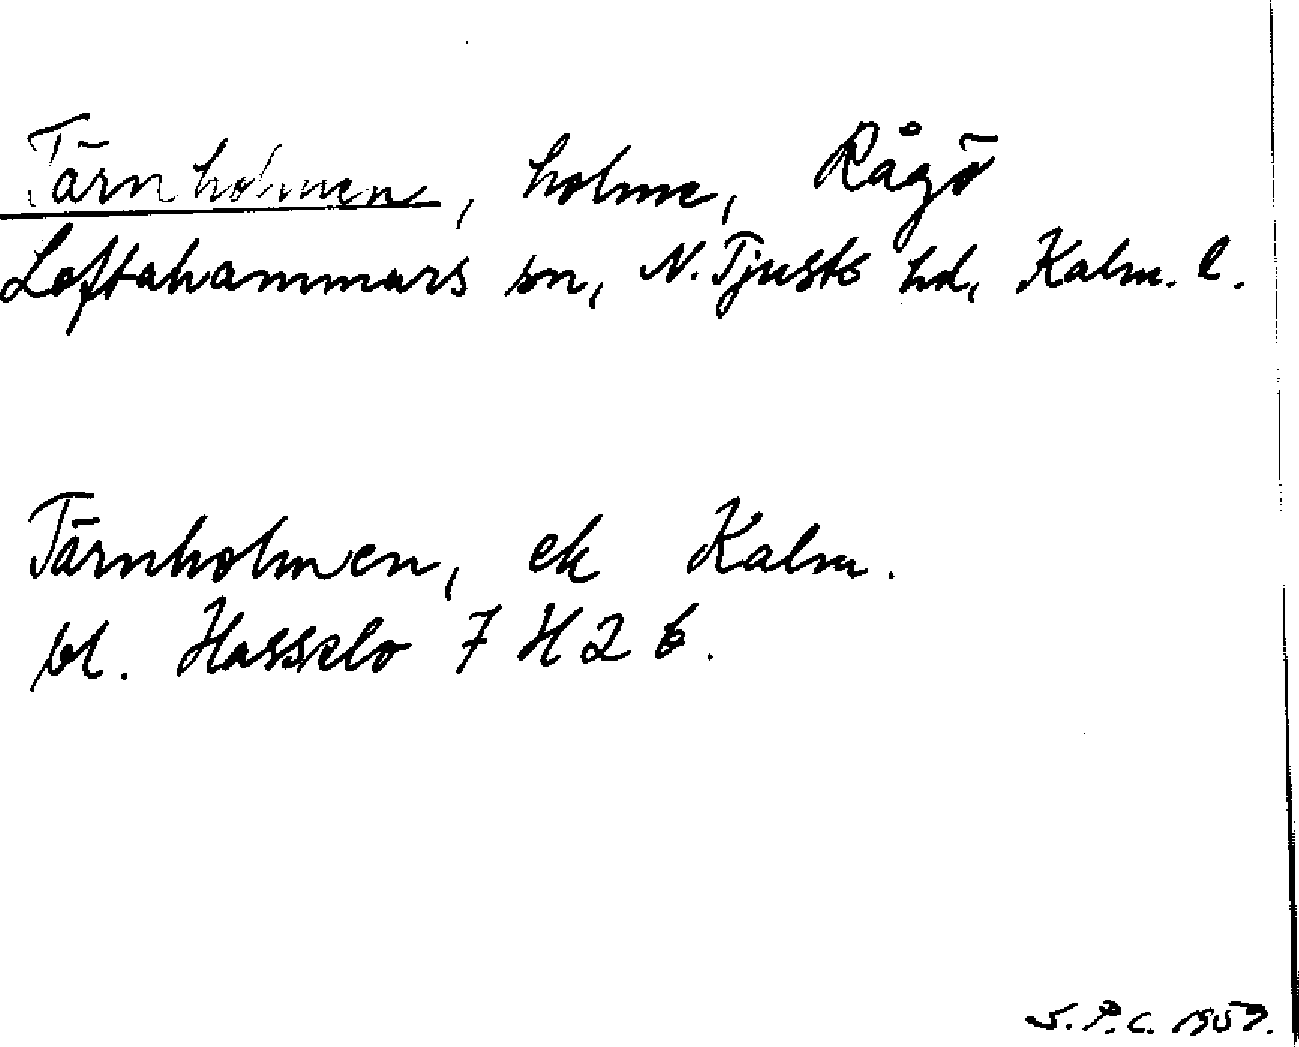 Tärnholmen, holme, Rågö
Loftahammars sn, N. Tjusts hd, Kalm. l.
Tärnholmen, ek Kalm.
bl. Hasselö 7 H 2 b.
S.P.C. 1959.